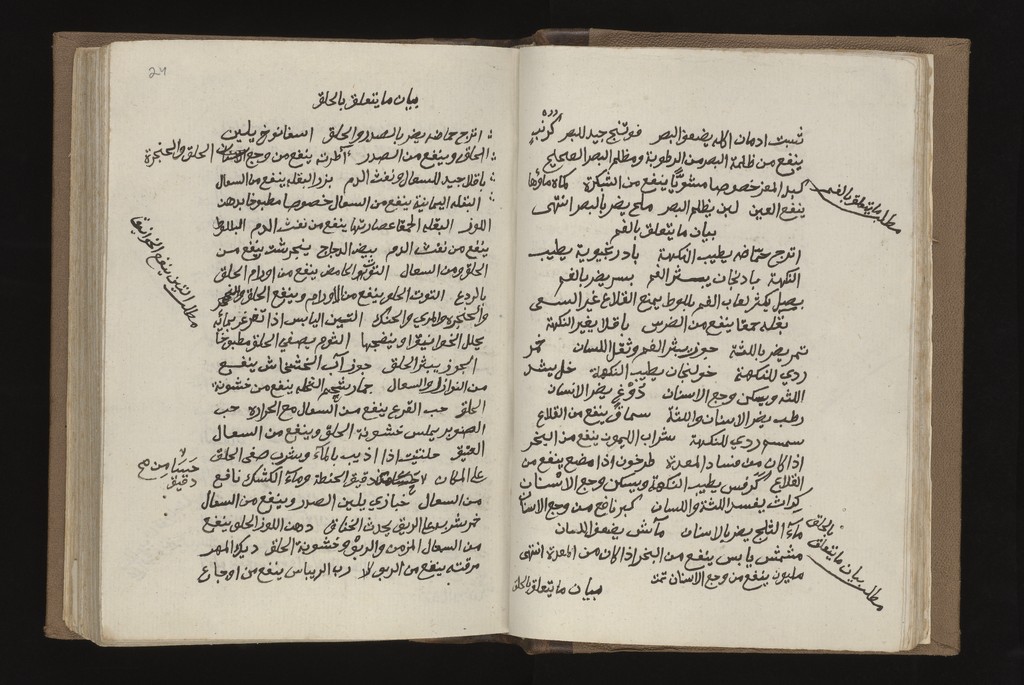 تست ادمان اكله يضعف البصر فوتنج جيد للبصر كرنب
ينفع من ظلمة البصر من الرطوبة ومظلم البصر الصحيح
كبد المعز خصوصا مشويا ينفع من الشبكرة كماه ماؤها
ينفع العين لبن يظلم البصر ملح يضر بالبصر انتهى
بيان ما يتعلق بالفم
اترج حماضه يطيب النكهة بادرنجبوية يطيب
النكهة بادنجان يبثر الفم بسر يضر بالفم
بصل يكثر لعاب الفم بلوط يمنع القلاع غير السعى
بقلة حمقا ينفع من الضرس باقلا يغير النكهة
تمر يضر باللثة جوز يبثر الفم وثقل اللسان خمر
ردي للنكهة خولنجان يطيب النكهة خل يشد
اللثة ويسكن وجع الاسنان دوغ يضر الاسنان
رطب يضر الاسنان واللثة سماق ينفع من القلاع
سمسم ردي للنكهة شراب الليمون ينفع من البخر
اذا كان من فساد المعدة طرخون اذا مضغ ينفع من
القلاع كرفس يطيب النكهة ويسكن وجع الاسنان
كراث يفسد اللثة والاسنان كبر نافع من وجع الاسنان
ماء الثلج يضر بالاسنان ماش يضعف الاسنان
مشمش يابس ينفع من البخر اذا كان من المعدة انتهى
هليون ينفع من وجع الاسنان تمت
بيان ما يتعلق بالحلق
مطلب ما يتعلق بالفم
مطلب بيان ما يتعلق بالحلق
24
بيان ما يتعلق بالحلق
اترج حماضه يضر بالصدر والحلق اسفاناخ يلين
الحلق وينفع من الصدر اطرية ينفع من وجع الحلق والحنجرة
باقلا جيد للسعال ونفث الدم بزر البقلة ينفع من السعال
البقلة اليمانية ينفع من السعال خصوصا مطبوخا بدهن
اللوز البقلة الحمقا عصارتها ينفع من نفث الدم البلوط
ينفع من نفث الدم بيض الدجاج ينفع من
الحلق ومن السعال التوت الحامض ينفع من اورام الحلق
بالردع التوت الحلو ينفع من الاورام وينفع الحلق والفم
والحنجرة والمري والحنك التين اليابس اذا تغرغر بمائه
يحلل الخوانيق وينضجها الثوم يصفي الحلق مطبوخا
الجوز يبثر الحلق جوز آب الخشخاش ينفع
من النوازل والسعال جمار النخلة ينفع من خشونة
الحلق حب القرع ينفع من السعال مع الحرارة حب
الصنوبر يملس خشونة الحلق وينفع من السعال
العتيق حلتيت اذا اذيب بالماء ويشرب صفى الحلق
على المكان دقيق الحنطة وماء الكشك نافع
من السعال خبازي يلين الصدر وينفع من السعال
خمر شربه على الريق يحدث الخناق دهن اللوز الحلو ينفع
من السعال المزمن والربو وخشونة الحلق ديك الهرم
مرقته ينفع من الربو رب الريباس ينفع من اوجاع
مطلب التين ينفع الخوانيق
حسا من
دقيق